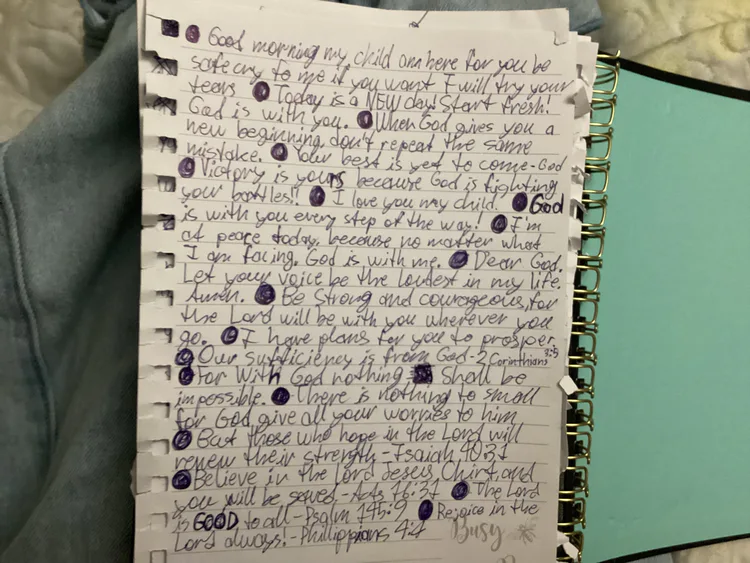 Good morning my child am here for you be
safe cry to me if you want I will try your
tears Today is a NEW day! Start fresh!
God is with you. When God gives you a
new beginning don't repeat the same
mistake. Your best is yet to come-God
Victory is yours because God is fighting
your battles!! I love you my child. God
is with you every step of the way! I'm
at peace today, because no matter what
I am facing. God is with me. Dear God.
Let your voice be the loudest in my life.
Amen. Be Strong and courageous, for
the Lord will be with you wherever you
go. I have plans for you to prosper
Our sufficiency is from God-2 Corinthians 3:5
For With God nothing shall be
impossible. There is nothing to small
for God give all your worries to him
But those who hope in the Lord will
renew their strength-Isaiah 40:31
Believe in the Lord Jesus Chirst, and
you will be saved-Acts 16:31 The Lord
is GOOD to all-Psalm 145:9 Rejoice in the
Lord always!-Phillippians 4:4
Busy